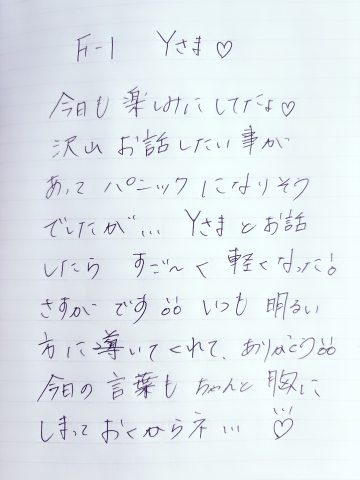 F-1 Yさま♡
今日も楽しみにしてたよ♡
沢山お話したい事が
あってパニックになりそう
でしたが… Yさまとお話
したら すご〜く 軽くなった!
さすが です!! いつも 明るい
方に導いてくれて、ありがとう!!
今日の言葉も ちゃんと 胸に
しまっておくからネ… ♡